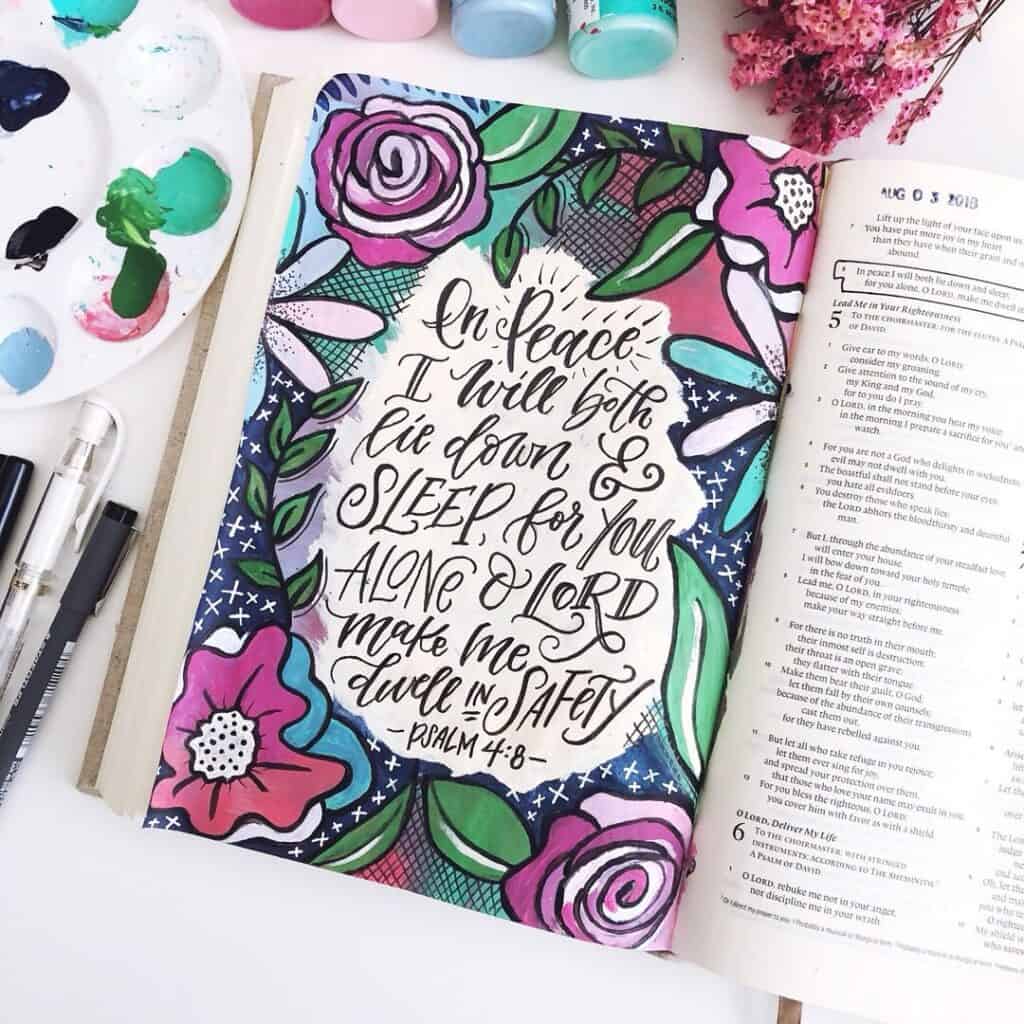 In Peace
I will both
lie down &
SLEEP, for You
ALONE O LORD
make me
dwell IN SAFETY
- PSALM 4:8 -
AUG 03 2018
Lift up the light of your face upon us
7 You have put more joy in my heart
than they have when their grain and
abound.
8 In peace I will both lie down and sleep;
for you alone, O LORD, make me dwell
Lead Me in Your Righteousness
5 TO THE CHOIRMASTER: FOR THE FLUTES. A
OF DAVID.
1 Give ear to my words, O LORD;
consider my groaning.
2 Give attention to the sound of my cry,
my King and my God,
for to you do I pray.
3 O LORD, in the morning you hear my voice;
in the morning I prepare a sacrifice for you and
watch.
4 For you are not a God who delights in wickedness;
evil may not dwell with you.
5 The boastful shall not stand before your eyes;
you hate all evildoers.
6 You destroy those who speak lies;
the LORD abhors the bloodthirsty and deceitful
man.
7 But I, through the abundance of your steadfast love,
will enter your house.
I will bow down toward your holy temple
in the fear of you.
8 Lead me, O LORD, in your righteousness
because of my enemies;
make your way straight before me.
9 For there is no truth in their mouth;
their inmost self is destruction;
their throat is an open grave;
they flatter with their tongue.
10 Make them bear their guilt, O God;
let them fall by their own counsels;
because of the abundance of their transgressions
cast them out,
for they have rebelled against you.
11 But let all who take refuge in you rejoice;
let them ever sing for joy,
and spread your protection over them,
that those who love your name may exult in you.
12 For you bless the righteous, O LORD;
you cover him with favor as with a shield.
O LORD, Deliver My Life
6 TO THE CHOIRMASTER: WITH STRINGED
INSTRUMENTS; ACCORDING TO THE SHEMINITH.
A PSALM OF DAVID.
1 O LORD, rebuke me not in your anger,
nor discipline me in your wrath.